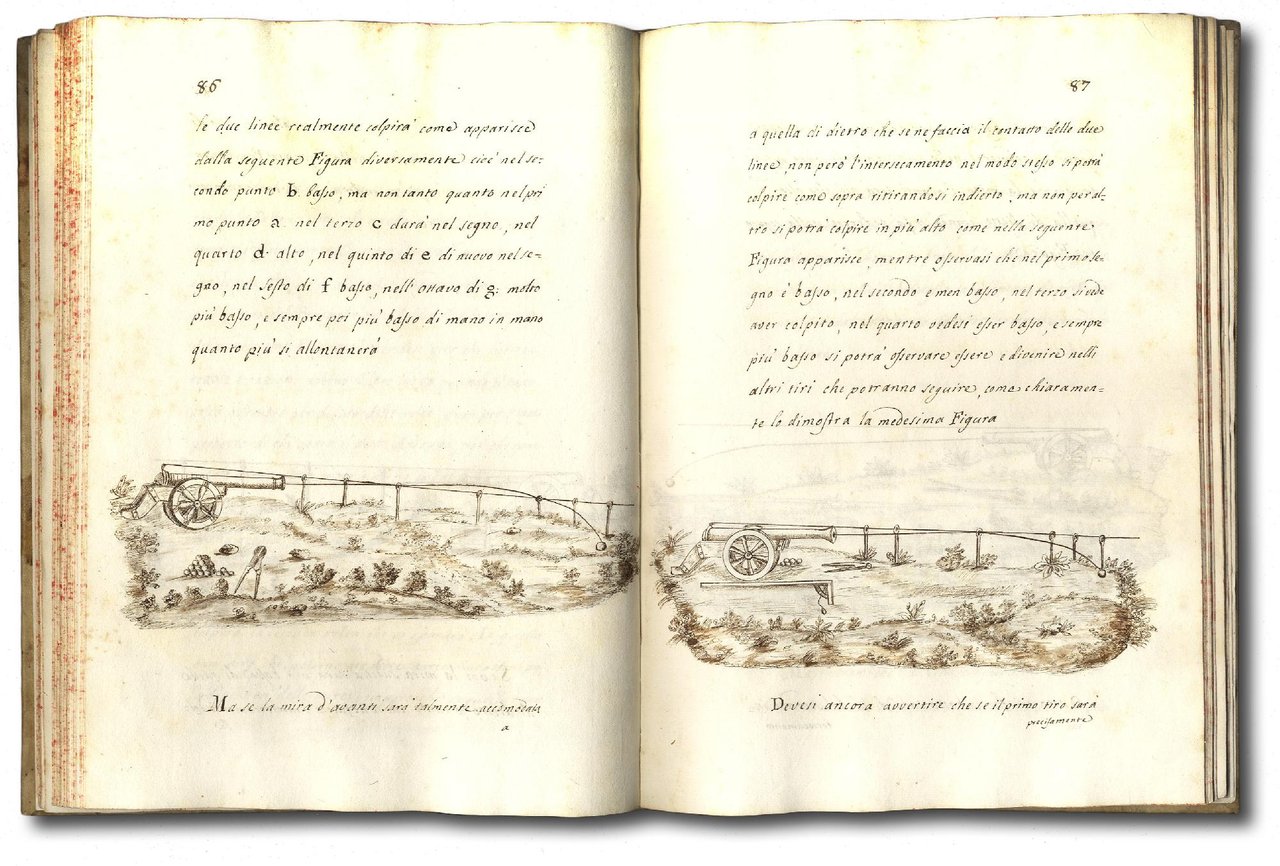 86
le due linee realmente colpirà come apparisce
dalla seguente Figura diversamente cioè nel se=
condo punto b basso, ma non tanto quanto nel pri
mo punto a. nel terzo c darà nel segno, nel
quarto d. alto, nel quinto di e di nuovo nel se=
gno, nel sesto di f basso, nell' ottavo di g: molto
più basso, e sempre poi più basso di mano in mano
quanto più si allontanerà
Ma se la mira d'avanti sarà talmente accomodata
a
87
a quella di dietro che se ne faccia il contatto delle due
linee, non però l'intersecamento nel modo stesso si potrà
colpire come sopra ritirandosi indierto, ma non per al=
tro si potrà colpire in più alto come nella seguente
Figura apparisce, mentre osservasi che nel primo se=
gno è basso, nel secondo è men basso, nel terzo si vede
aver colpito, nel quarto vedesi esser basso, e sempre
più basso si potrà osservare essere e divenire nelli
altri tiri che potranno seguire, come chiaramen=
te lo dimostra la medesima Figura
Devesi ancora avvertire che se il primo tiro sarà
precisamente